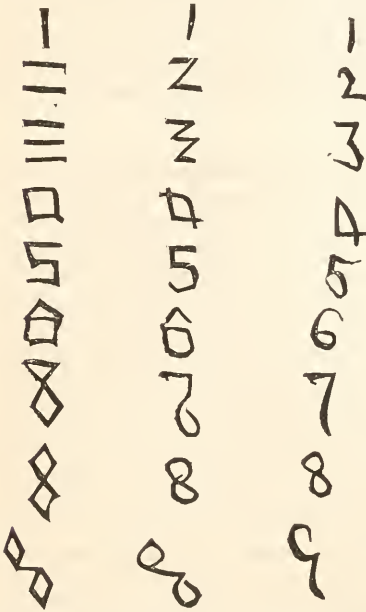 1 1 1
二 2 2
三 3 3
4 4 4
5 5 5
6 6 6
7 7 7
8 8 8
9 9 9